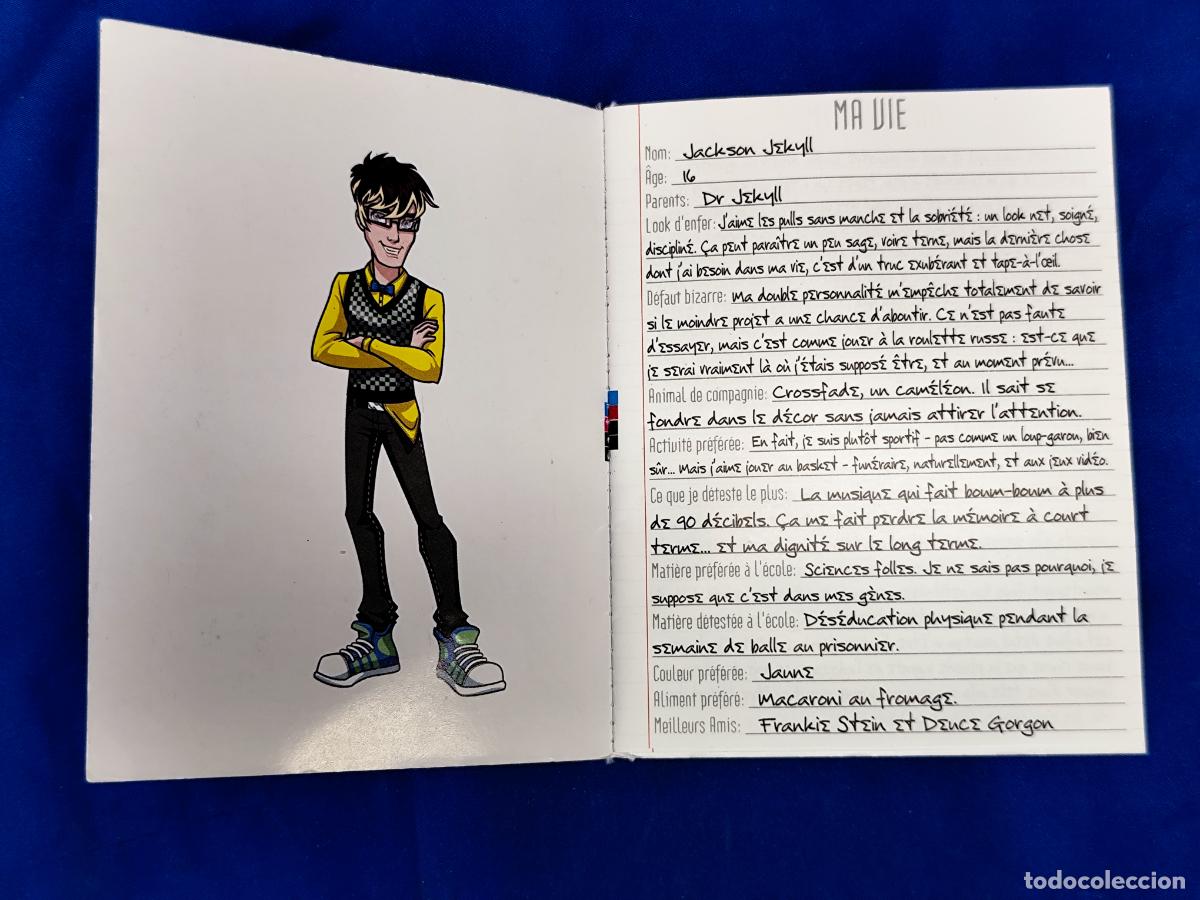 MA VIE
Nom: Jackson Jekyll
Âge: 16
Parents: Dr Jekyll
Look d'enfer: J'aime les pulls sans manche et la sobriété : un look net, soigné,
discipliné. Ça peut paraître un peu sage, voire terne, mais la dernière chose
dont j'ai besoin dans ma vie, c'est d'un truc exubérant et tape-à-l'œil.
Défaut bizarre: Ma double personnalité m'empêche totalement de savoir
si le moindre projet a une chance d'aboutir. Ce n'est pas faute
d'essayer, mais c'est comme jouer à la roulette russe : est-ce que
je serai vraiment là où j'étais supposé être, et au moment prévu...
Animal de compagnie: Crossfade, un caméléon. Il sait se
fondre dans le décor sans jamais attirer l'attention.
Activité préférée: En fait, je suis plutôt sportif - pas comme un loup-garou, bien
sûr... Mais j'aime jouer au basket - funéraire, naturellement, et aux jeux vidéo.
Ce que je déteste le plus: La musique qui fait boum-boum à plus
de 90 décibels. Ça me fait perdre la mémoire à court
terme... et ma dignité sur le long terme.
Matière préférée à l'école: Sciences folles. Je ne sais pas pourquoi, je
suppose que c'est dans mes gènes.
Matière détestée à l'école: Déséducation physique pendant la
semaine de balle au prisonnier.
Couleur préférée: Jaune
Aliment préféré: Macaroni au fromage.
Meilleurs Amis: Frankie Stein et Deuce Gorgon
todocoleccion